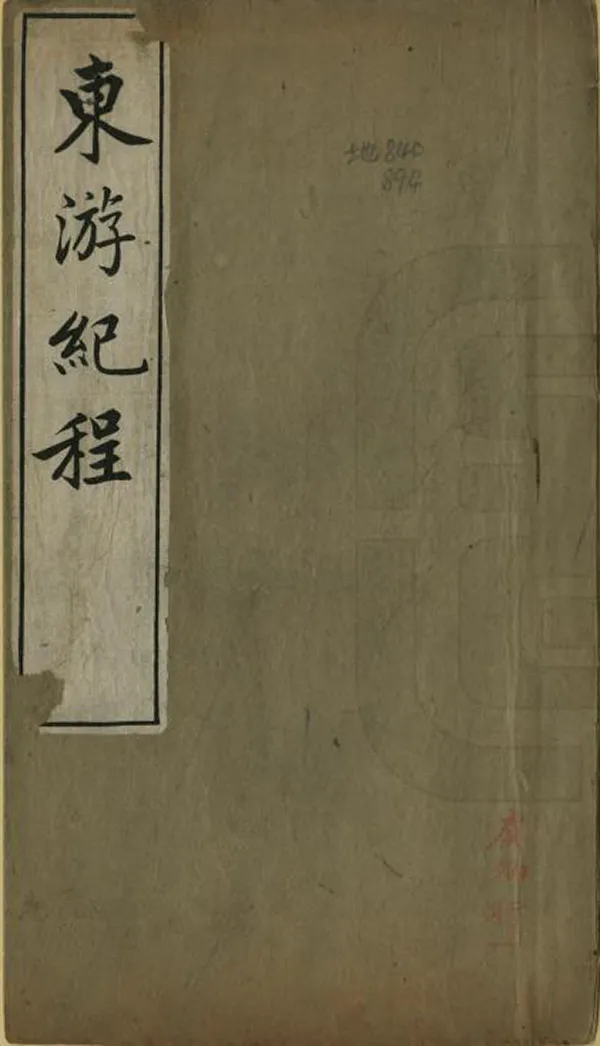 東游紀程
地840
894